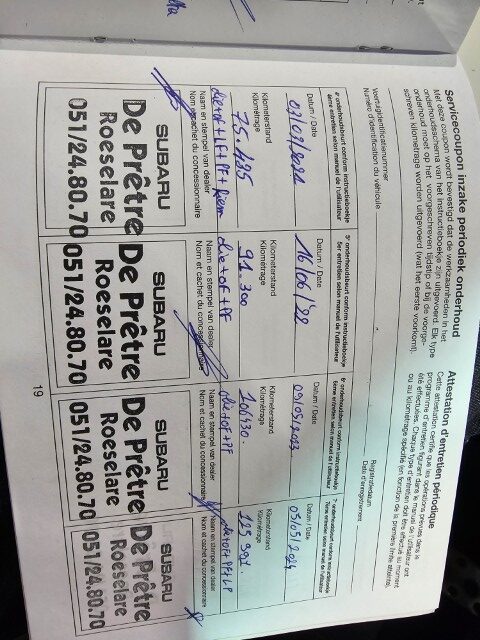 Servicecoupon inzake periodiek onderhoud
Met deze coupon wordt bevestigd dat de werkzaamheden in het
onderhoudsschema van het instructieboekje zijn uitgevoerd. Elk type
onderhoud moet op het voorgeschreven tijdstip of bij de voorge-
schreven kilometrage worden uitgevoerd (wat het eerste voorkomt).
Attestation d'entretien périodique
Cette attestation certifie que les opérations prévues dans le
programme d'entretien figurant dans le manuel de l'utilisateur ont
été effectuées. Chaque type d'entretien doit être effectué au moment
ou au kilométrage spécifié (en fonction de la première limite atteinte).
Voertuigidentificatienummer
Numéro d'identification du véhicule
Registratiedatum
Date d'enregistrement
4e onderhoudsbeurt conform instructieboekje
4ème entretien selon manuel de l'utilisateur
Datum / Date
07/07/2021
Kilometerstand
Kilométrage
75.495
Naam en stempel van dealer
Nom et cachet du concessionnaire
SUBARU
De Prêtre
Roeselare
051/24.80.70
5e onderhoudsbeurt conform instructieboekje
5er entretien selon manuel de l'utilisateur
Datum / Date
16/06/'22
Kilometerstand
Kilométrage
91.300
Naam en stempel van dealer
Nom et cachet du concessionnaire
olie + OF + PF
SUBARU
De Prêtre
Roeselare
051/24.80.70
6e onderhoudsbeurt conform instructieboekje
6ème entretien selon manuel de l'utilisateur
Datum / Date
09/05/2023
Kilometerstand
Kilométrage
106130.
Naam en stempel van dealer
Nom et cachet du concessionnaire
SUBARU
De Prêtre
Roeselare
051/24.80.70
7e onderhoudsbeurt conform instructieboekje
7ème entretien selon manuel de l'utilisateur
Datum / Date
03/05/2024
Kilometerstand
Kilométrage
Naam en stempel van dealer
Nom et cachet du concessionnaire
SUBARU
De Prêtre
Roeselare
051/24.80.70
19